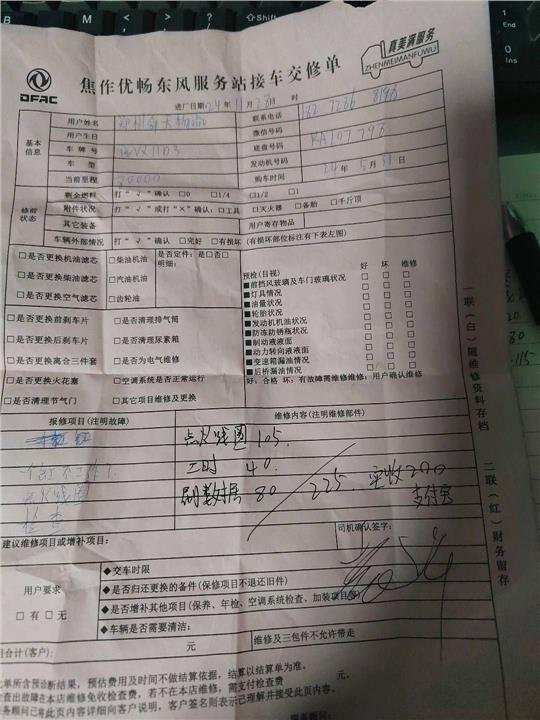 DFAC
焦作优畅东风服务站接车交修单
真美满服务
ZHENMEIMANFUWU
进厂日期24年11月28日 时
基本信息
用户姓名
联系电话
用户生日
微信号码
车牌号
底盘号码 RA107798
车型
发动机号码
当前里程
购车时间 24年5月31日
修前状态
剩余燃料 打“√”确认 □0 □1/4 □1/2 □1
附件状况 打“√”或打“×”确认：□工具 □灭火器 □备胎 □千斤顶
其它装备
用户寄存物品
车辆外部情况 打“√”确认 □完好 □有损坏 (有损坏部位标注有下表左图)
□是否更换机油滤芯 □柴油机油 是否定件：是□否□
明细：
□是否更换柴油滤芯 □汽油机油
□是否更换空气滤芯 □齿轮油
□是否更换前刹车片 □是否清理排气筒
□是否更换后刹车片 □是否清理尿素箱
□是否更换离合三件套 □是否为电气维修
□是否更换火花塞 □空调系统是否正常运行
□是否清理节气门 □其它项目维修及更换
预检(目视) 好 坏 维修
■前挡风玻璃及车门玻璃状况 □ □ □
■灯具情况 □ □ □
■油量状况 □ □ □
■轮胎状况 □ □ □
■发动机机油状况 □ □ □
■防冻防锈瓶状况 □ □ □
■制动液液面 □ □ □
■动力转向液液面 □ □ □
■变速箱漏油情况 □ □ □
■后桥漏油情况 □ □ □
好：合格 坏：有故障需维修维修：用户确认维修
报修项目(注明故障)
维修内容(注明维修部件)
一个缸不工作
点火线圈
检查
点火线圈 105.
工时 40.
刷数据 80
225. 实收200
支付宝
建议维修项目或增补项目：
司机确认签字：
用户要求
□有□无
◆交车时限
◆是否归还更换的备件(保修项目不退还旧件)
◆是否增补其他项目(保养、年检、空调系统检查、加装项目等)
◆车辆是否需要清洁：
合计(客户)： 元
维修及三包件不允许带走
单所含预诊断结果，预估费用及时间不做结算依据，结算以结算单为准。
查出故障在本店维修免收检查费，若不在本店维修，需支付检查费 元。
已将此页内容详细向客户说明，客户签名则表示已理解并接受此页内容。
一联（白）随维修资料存档
二联（红）财务留存